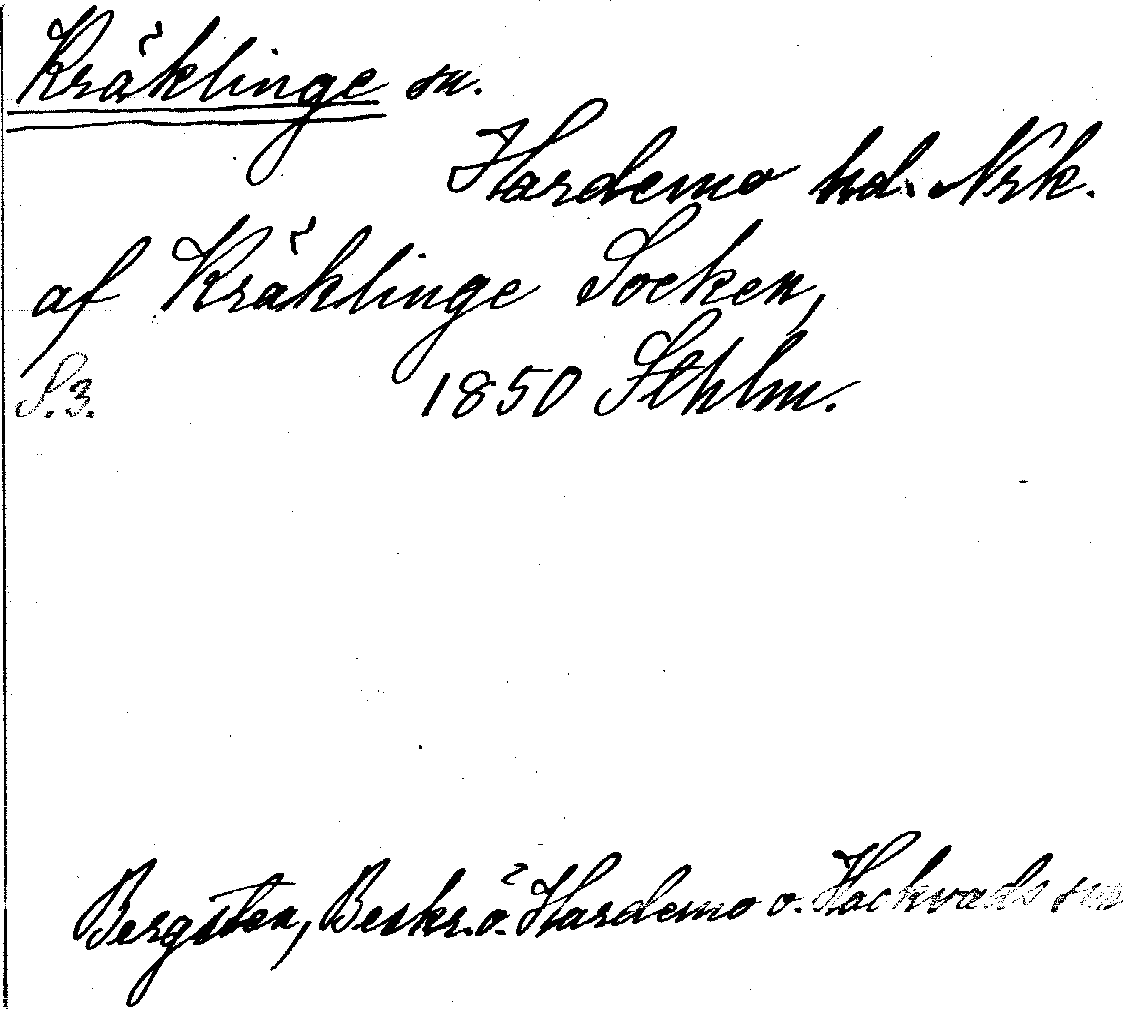 Kräklinge sn.
Hardemo hd. Nrk.
af Kräklinge Socken,
S. 3. 1850 Sthlm.
Bergsten, Beskr. ö. Hardemo o. Hackvads sns